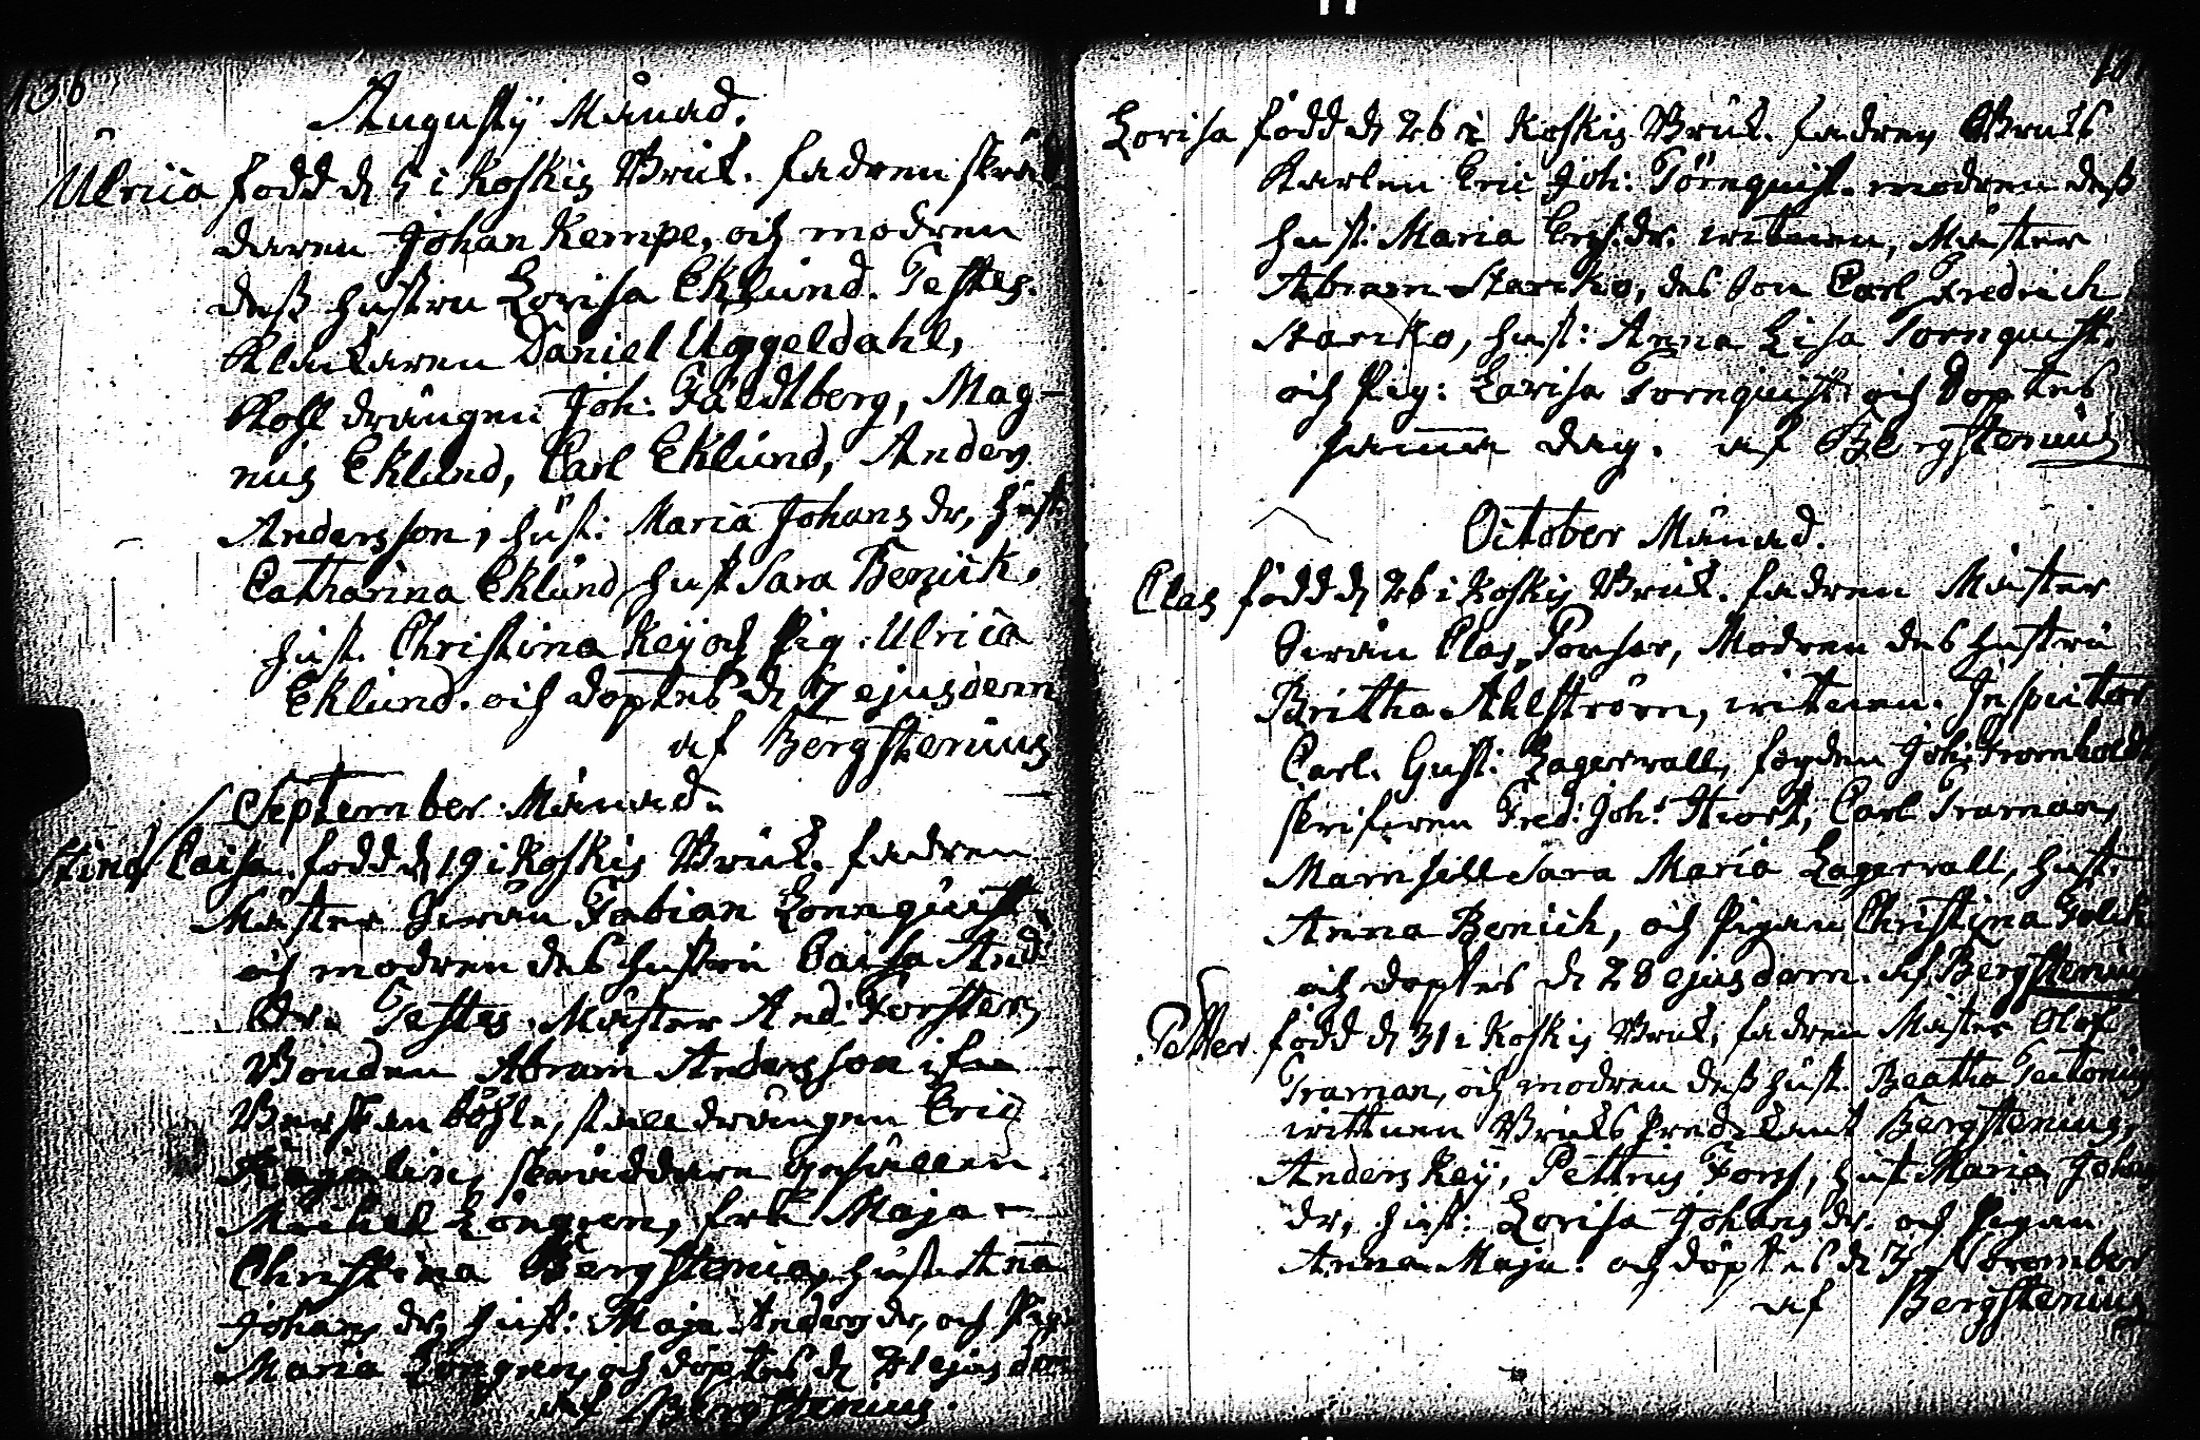 136
Augusty Månad.
Ulrica född d 5 i Koskis Bruk. fadren skräd
daren Johan Kempe, och modren
dess hustru Lovisa Eklund. Testes.
Klockaren Daniel Uggeldahl,
Kohl drängen Joh: Fäldtberg, Mag-
nus Eklund, Carl Eklund, Anders
Andersson, hust: Maria Johans dr, hust
Catharina Eklund hust Sara Benick,
hust. Christina Key och Pig. Ulrica
Eklund. och döptes d 7 ejusdem
af Bergstenius
September Månad.
Stina Caisa. född d 19 i Koskis Bruk. fadren
Mäster Fabian Lönnquist
och modren des hustru Caisa And
dr. Testes. Mäster And: Forsten
Bonden Abram Andersson i
stalldrängen Eric
skräddare gesällen
Michel Löngren, Maja
Christina Bergstenia, hust Anna
Johans dr, hust: Maja Anders dr, och Pig:
Maria Löngren, och döptes d 21 ejusdem
af Bergstenius.
Lovisa född d 26 i Koskis Bruk. fadren Bruks
Karlen Eric Joh: Törnquist. modren dess
hust: Maria dr. witnen, Mäster
Abram Starcko, des son Carl Fredrich
Starcko, hust: Anna Lisa Tornquist.
och Pig: Lovisa Tornquist och Döptes
samma dag. af Bergstenius
October Månad.
Clas född d 26 i Koskis Bruk. fadren Mäster
Clas Ponsar, Modren des hustru
Britha Ahlström, witnen. Inspector
Carl. Gust: Lagervall, fogden Joh: Fromholdt,
skrifvren Fred: Joh: Hiort, Carl Traman,
Mamsill Sara Maria Lagervall, hust.
Anna Benick, och Pigan Christina
och döptes d 28 ejusdem. af Bergstenius
Petter. född d 31 i Koskis Bruk, fadren Mäster Olof
Traman, och modren dess hust. Beatha
wittnen Bruks Predikant Bergstenius,
Anders Key, Pettrus Fors, hust Maria Johans
dr, hust: Lovisa Johans dr. och Pigan
Anna Maja. och döptes d 3 November
af Bergstenius